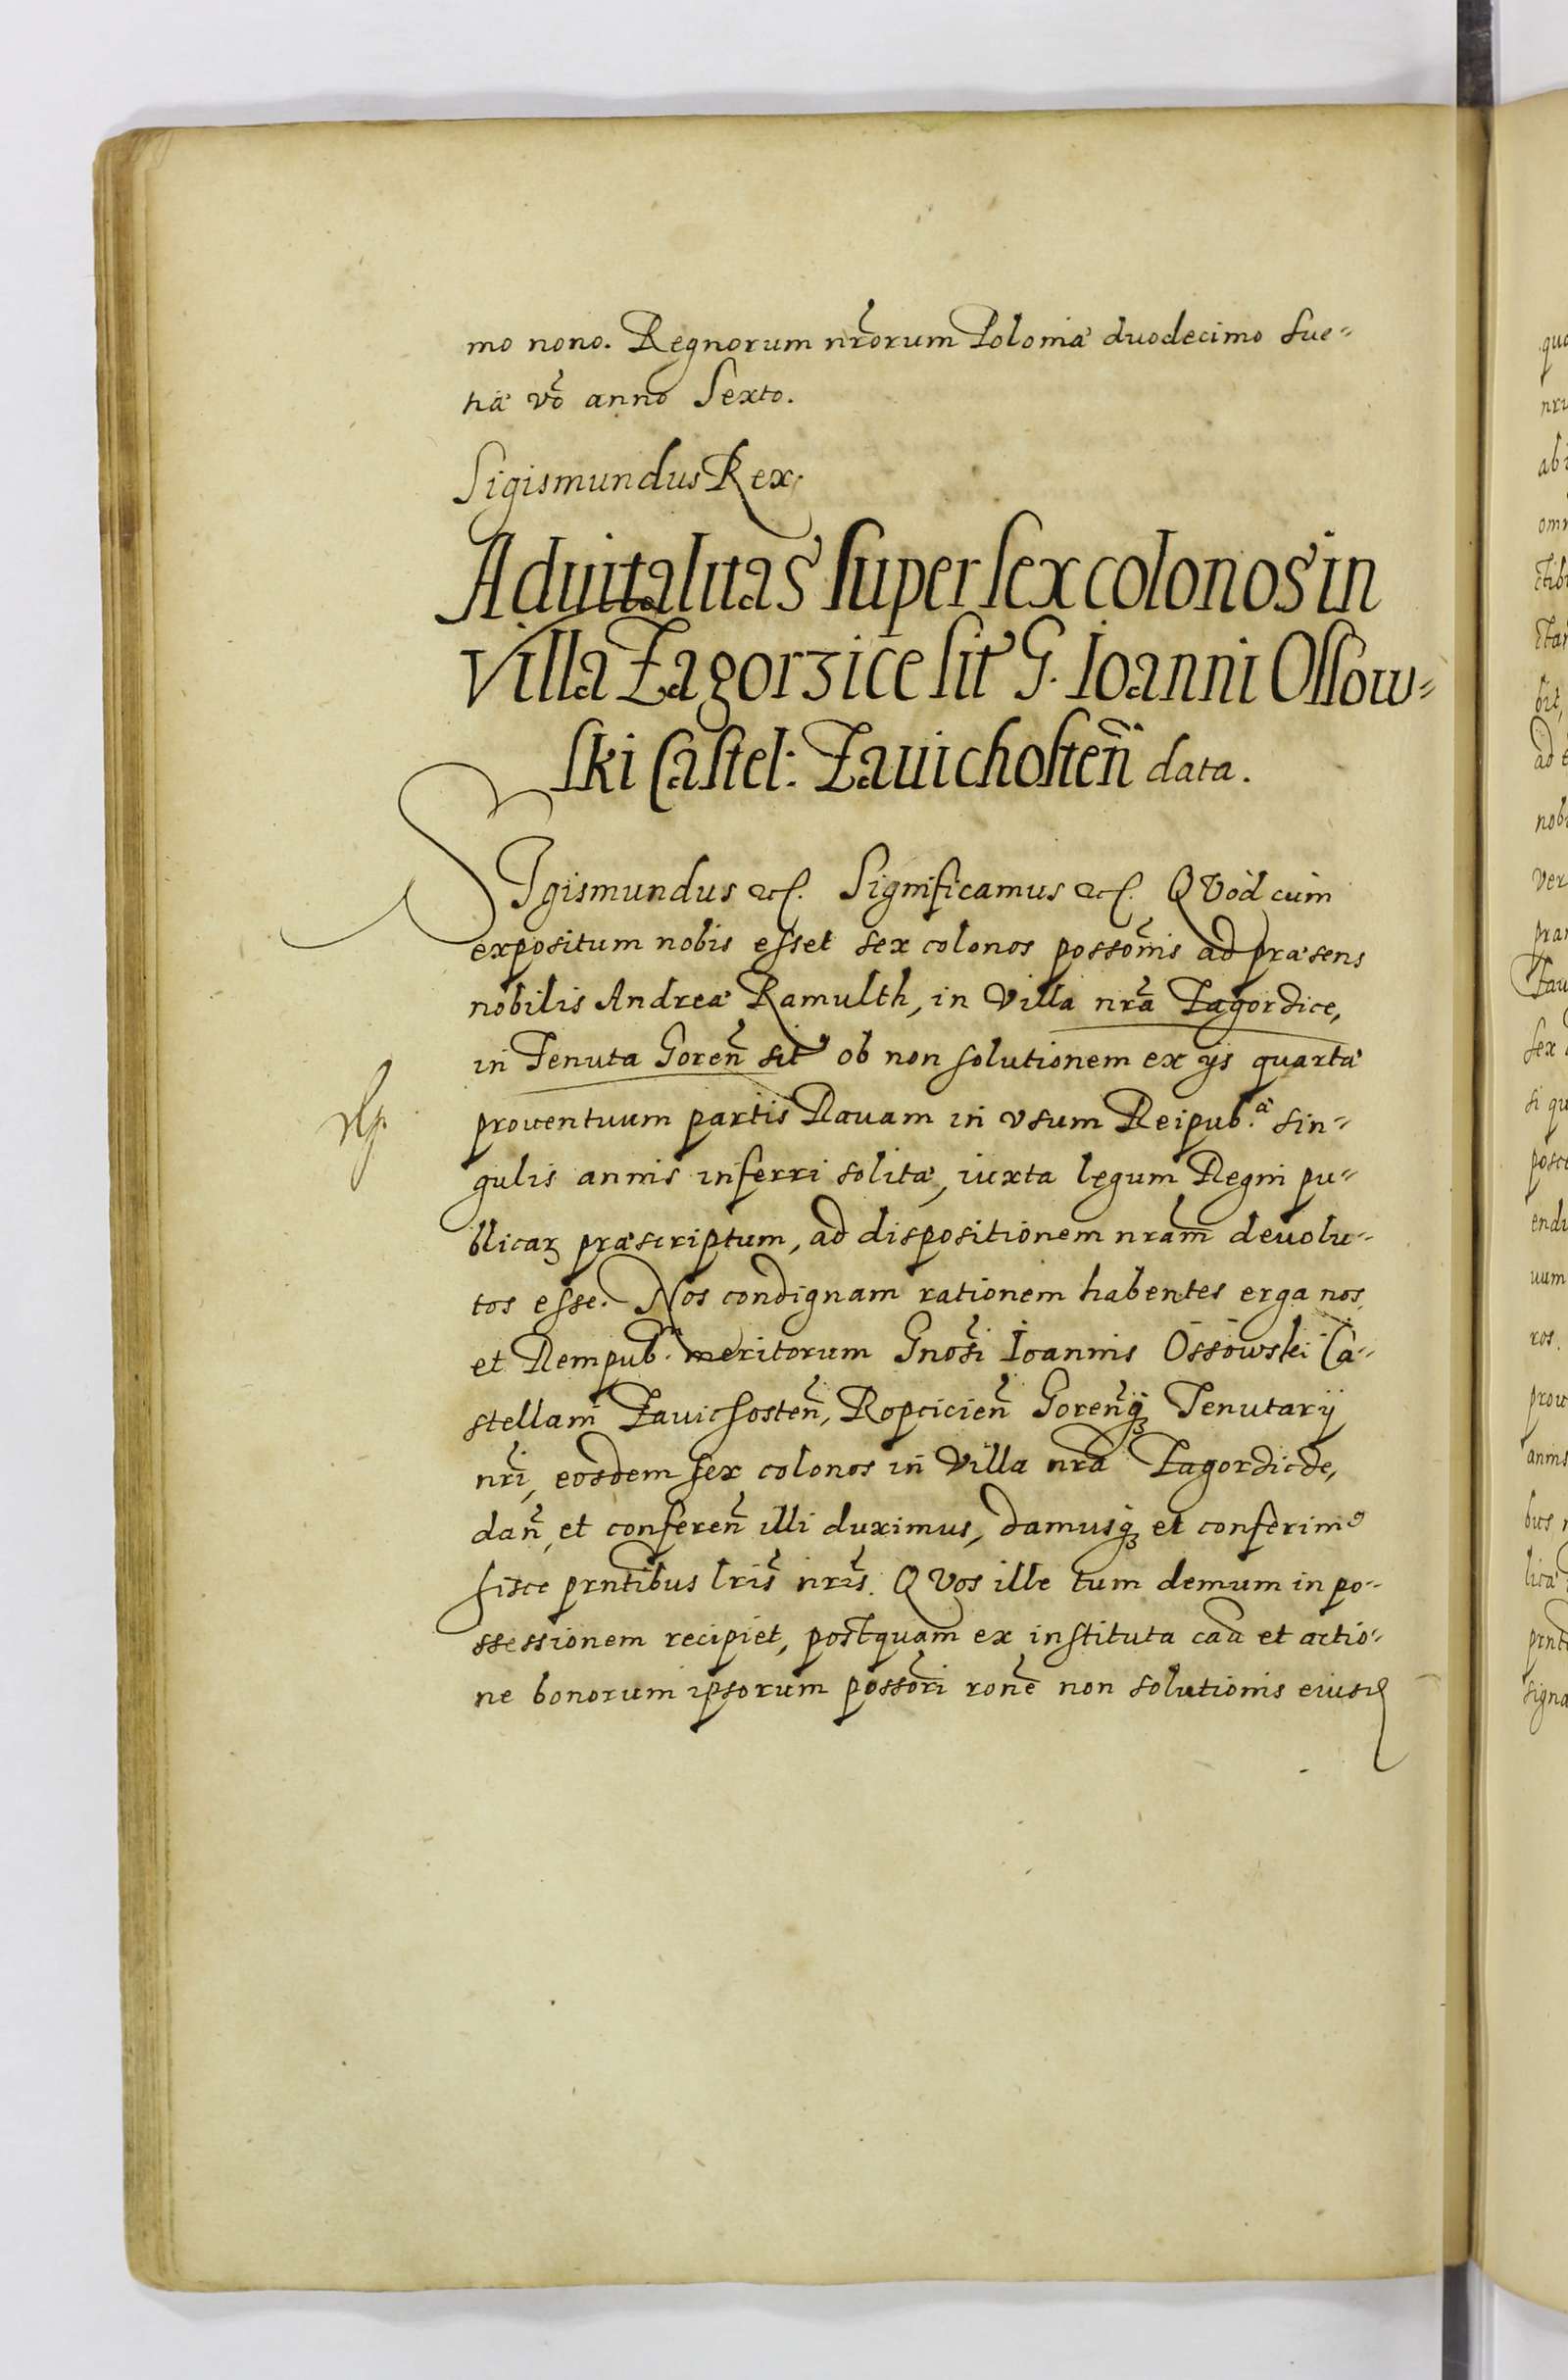 mo nono. Regnorum nr̃orum Poloniæ duodecimo Sue=
tiæ võ anno Sexto.
Sigismundus Rex.
Aduitalitas super sex colonos in
Villa Zagorzice sit G. Ioanni Ossow=
ski Castel: Zauichosten̄ data.
SIgismundus etc. Significamus etc. QVod cum
expositum nobis esset sex colonos possoñis ad præsens
nobilis Andreæ Ramulth, in Villa nr̃a Zagordice,
in Tenuta Goren̄ sit ob non solutionem ex ijs quartæ
prouentuum partis Rauam in vsum Reipub.æ sin=
gulis annis inferri solitæ, iuxta legum Regni pu=
blicaꝝ præscriptum, ad dispositionem nr̃am deuolu=
tos esse. Nos condignam rationem habentes erga nos
et Rempub. meritorum Gnõsi Ioannis Ossowski Ca=
stellani Zauichosten̄, Ropcicien̄ Goren̄qꝫ Tenutarij
nr̃i, eosdem sex colonos in Villa nr̃a Zagordicde,
dan̄, et conferen̄ illi duximus, damusqꝫ et conferimꝰ
hisce prñtibus lr̃is nr̃is. QVos ille tum demum in po=
ssessionem recipiet, postquam ex instituta cãa et actio=
ne bonorum ipsorum possõri rõne non solutionis eiusd